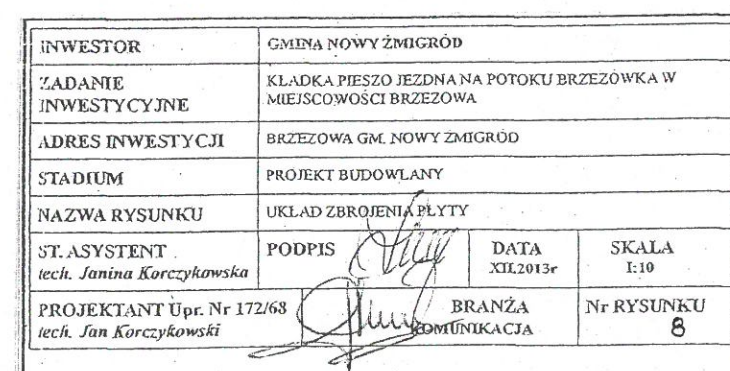 INWESTOR GMINA NOWY ŻMIGRÓD
ZADANIE INWESTYCYJNE KŁADKA PIESZO JEZDNA NA POTOKU BRZEZÓWKA W
MIEJSCOWOŚCI BRZEZOWA
ADRES INWESTYCJI BRZEZOWA GM. NOWY ŻMIGRÓD
STADIUM PROJEKT BUDOWLANY
NAZWA RYSUNKU UKŁAD ZBROJENIA PŁYTY
ST. ASYSTENT PODPIS DATA SKALA
tech. Janina Korczykowska XII.2013r 1:10
PROJEKTANT Upr. Nr 172/68 BRANŻA Nr RYSUNKU
tech. Jan Korczykowski KOMUNIKACJA 8